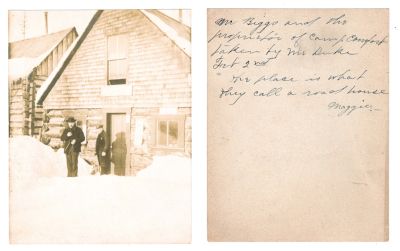 Mr Biggs and the
proprietor of Camp Comfort
taken by Mr Duke
Feb 2nd
"The place is what
they call a road house
Maggie.